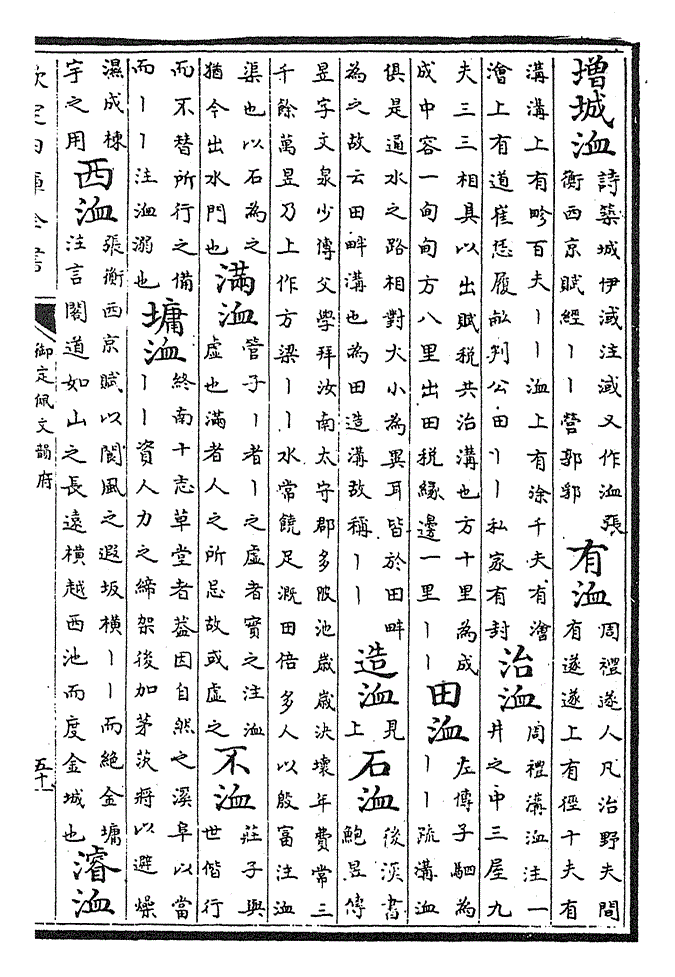 增城洫
詩築城伊淢注淢又作洫張
衡西京賦經丨丨營郭郛
有洫
周禮遂人凡治野夫間
有遂遂上有徑十夫有
溝溝上有畛百夫丨丨洫上有涂千夫有澮
澮上有道崔恁履畝判公田丨丨私家有封
治洫
周禮溝洫注一
井之中三屋九
夫三三相具以出賦税共治溝也方十里為成
成中容一甸甸方八里出田税緣邊一里丨丨
田洫
左傳子駟為
丨丨疏溝洫
俱是通水之路相對大小為異耳皆於田畔
為之故云田畔溝也為田造溝故稱丨丨
造洫
見
上
石洫
後漢書
鮑昱傳
昱字文泉少傳父學拜汝南太守郡多陂池歲歲決壞年費常三
千餘萬昱乃上作方梁丨丨水常饒足溉田倍多人以殷富注洫
渠也以石為之
猶今出水門也
滿洫
管子丨者丨之虛者實之注洫
虛也滿者人之所忌故或虛之
不洫
莊子與
世偕行
而不替所行之備
而丨丨注洫溺也
墉洫
終南十志草堂者葢因自然之溪阜以當
丨丨資人力之締架後加茅茨將以避燥
濕成棟
宇之用
西洫
張衡西京賦以閬風之遐坂橫丨丨而絶金墉
注言閣道如山之長遠橫越西池而度金城也
濬洫
欽定四庫全書
御定佩文韻府
五十一